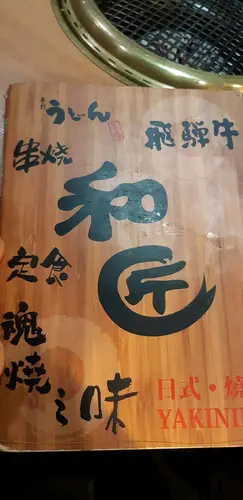 うどん
飛騨牛
串焼
和匠
定食
魂焼
之味
日式・燒
YAKINI